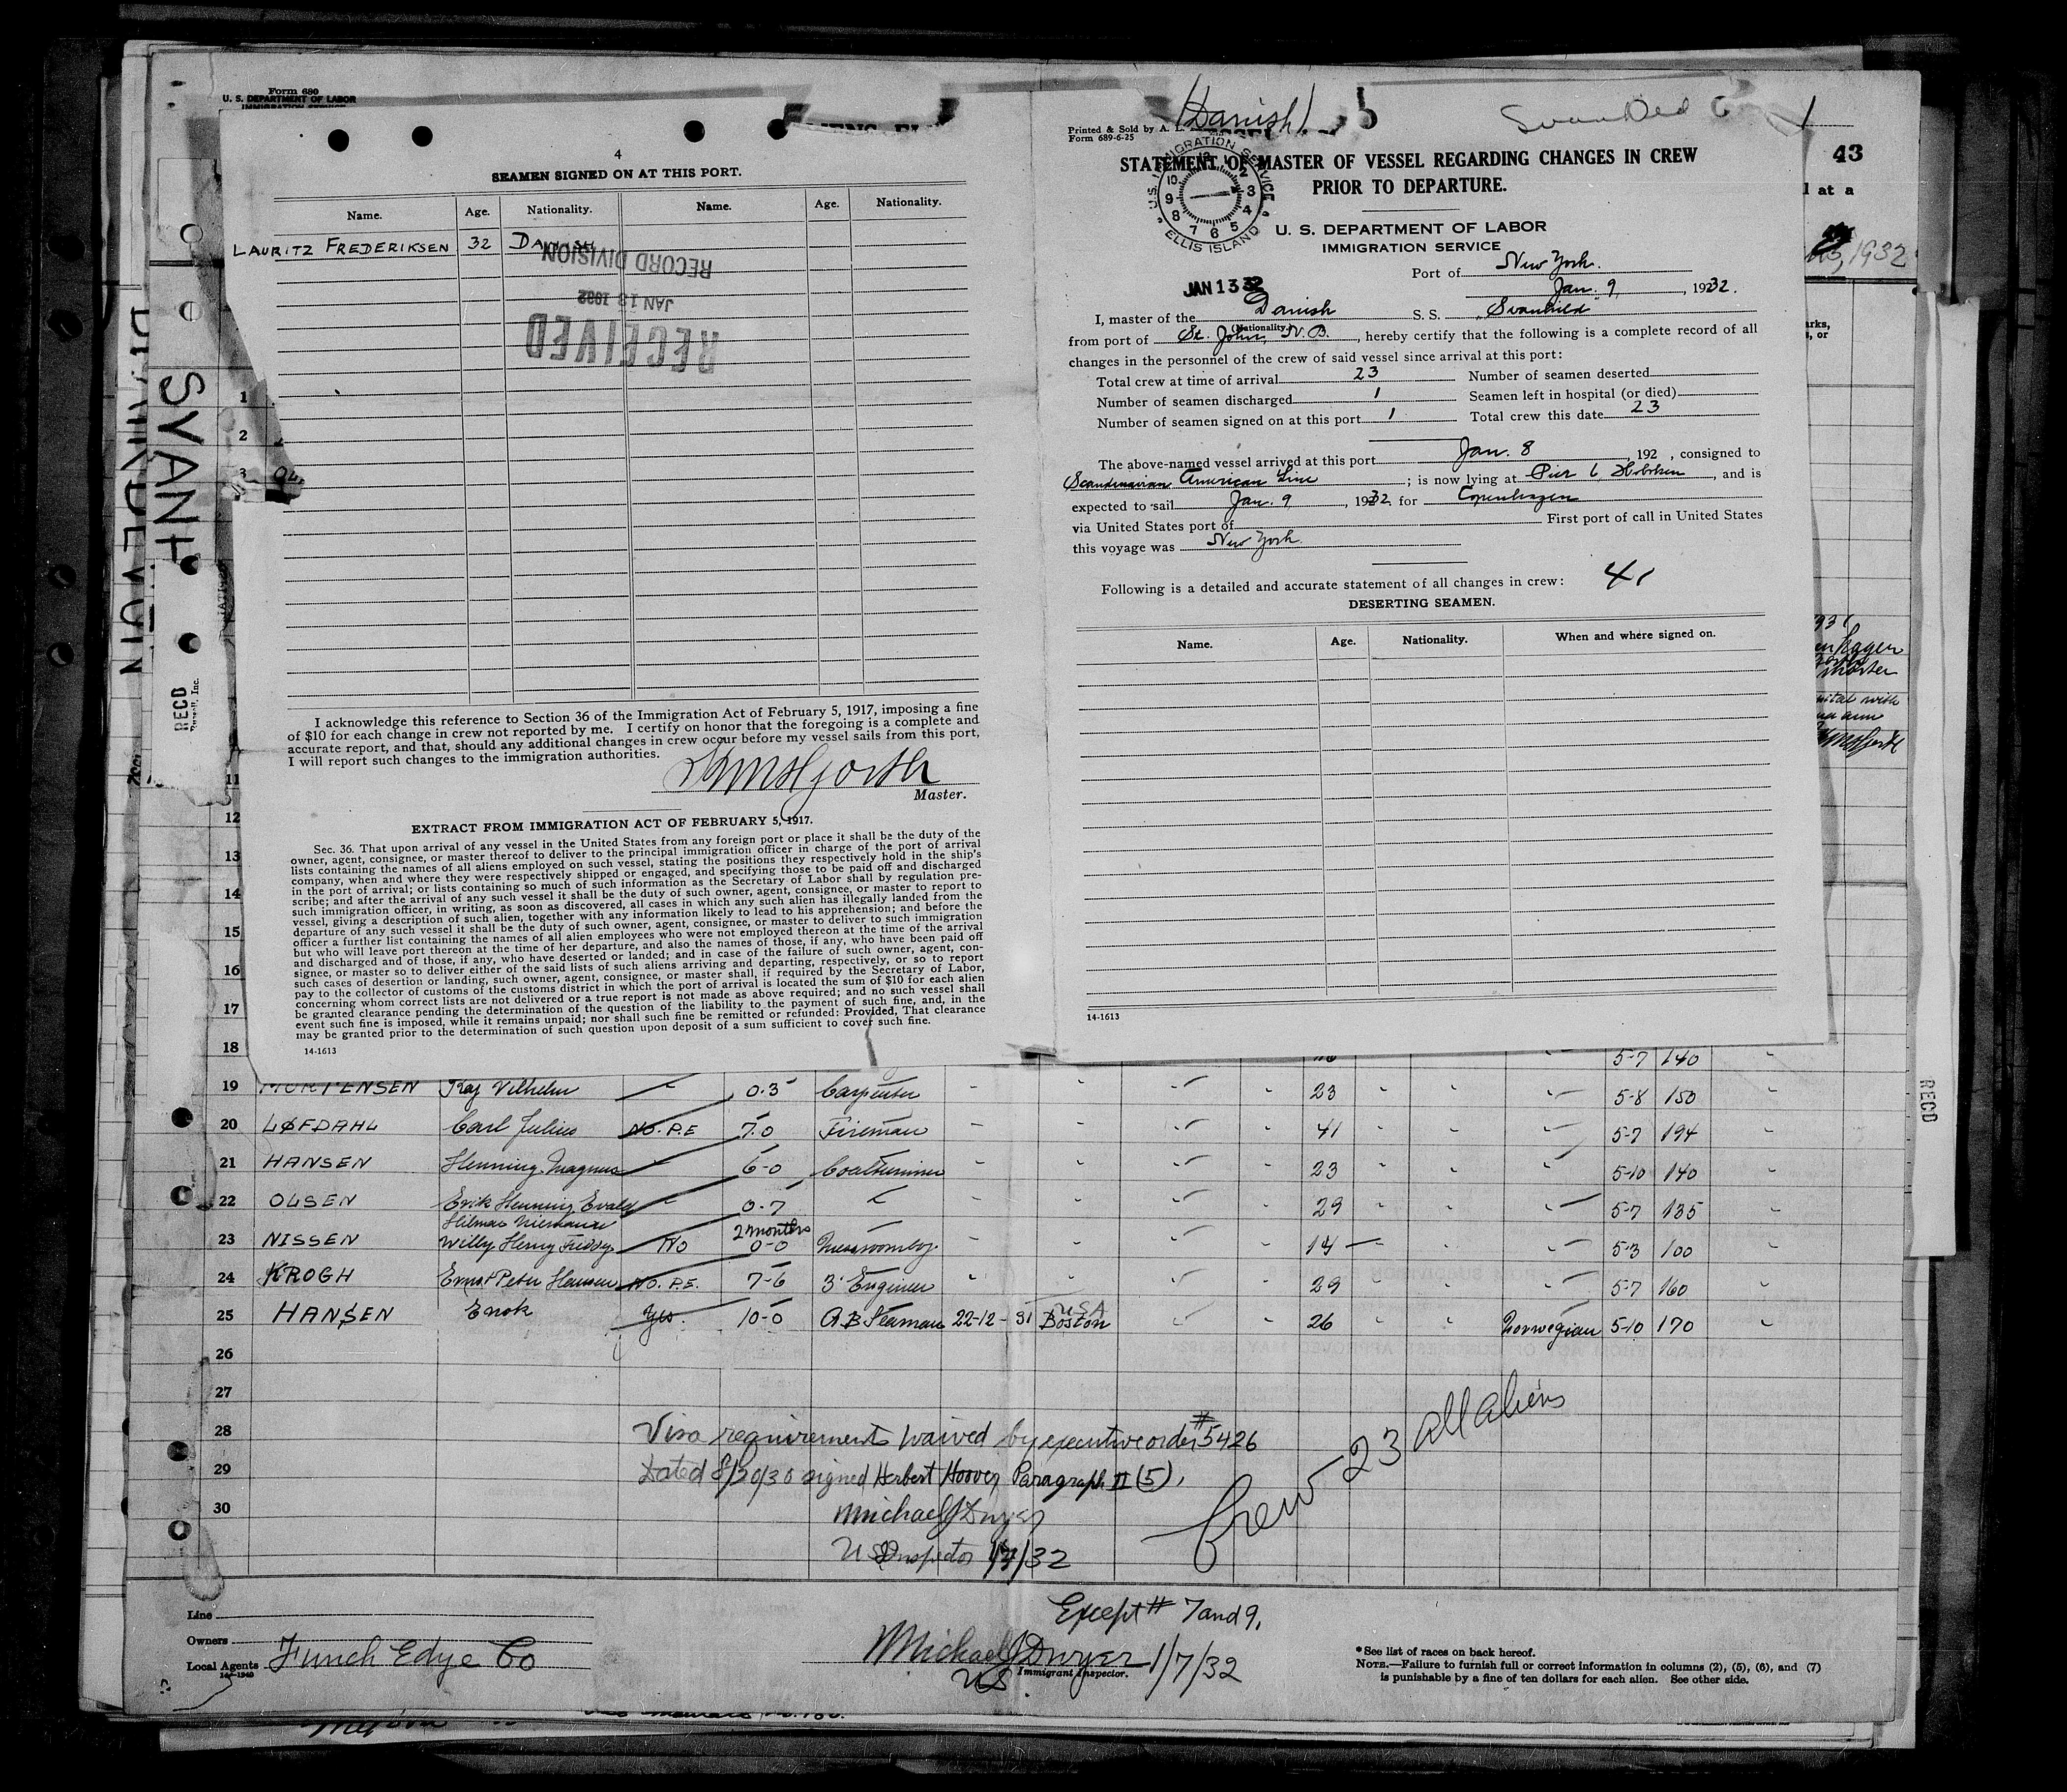 Form 680
U. S. DEPARTMENT OF LABOR
4
SEAMEN SIGNED ON AT THIS PORT.
Name. Age. Nationality. Name. Age. Nationality.
LAURITZ FREDERIKSEN 32 DANISH
RECORD DIVISION
JAN 13 1932
RECEIVED
I acknowledge this reference to Section 36 of the Immigration Act of February 5, 1917, imposing a fine
of $10 for each change in crew not reported by me. I certify on honor that the foregoing is a complete and
accurate report, and that, should any additional changes in crew occur before my vessel sails from this port,
I will report such changes to the immigration authorities.
Master.
EXTRACT FROM IMMIGRATION ACT OF FEBRUARY 5, 1917.
Sec. 36. That upon arrival of any vessel in the United States from any foreign port or place it shall be the duty of the
owner, agent, consignee, or master thereof to deliver to the principal immigration officer in charge of the port of arrival
lists containing the names of all aliens employed on such vessel, stating the positions they respectively hold in the ship's
company, when and where they were respectively shipped or engaged, and specifying those to be paid off and discharged
in the port of arrival; or lists containing so much of such information as the Secretary of Labor shall by regulation pre-
scribe; and after the arrival of any such vessel it shall be the duty of such owner, agent, consignee, or master to report to
such immigration officer, in writing, as soon as discovered, all cases in which any such alien has illegally landed from the
vessel, giving a description of such alien, together with any information likely to lead to his apprehension; and before the
departure of any such vessel it shall be the duty of such owner, agent, consignee, or master to deliver to such immigration
officer a further list containing the names of all alien employees who were not employed thereon at the time of the arrival
but who will leave port thereon at the time of her departure, and also the names of those, if any, who have been paid off
and discharged and of those, if any, who have deserted or landed; and in case of the failure of such owner, agent, con-
signee, or master so to deliver either of the said lists of such aliens arriving and departing, respectively, or so to report
such cases of desertion or landing, such owner, agent, consignee, or master shall, if required by the Secretary of Labor,
pay to the collector of customs of the customs district in which the port of arrival is located the sum of $10 for each alien
concerning whom correct lists are not delivered or a true report is not made as above required; and no such vessel shall
be granted clearance pending the determination of the question of the liability to the payment of such fine, and, in the
event such fine is imposed, while it remains unpaid; nor shall such fine be remitted or refunded: Provided, That clearance
may be granted prior to the determination of such question upon deposit of a sum sufficient to cover such fine.
14-1613
(Danish)
Printed & Sold by A. L.
Form 689-6-25
STATEMENT OF MASTER OF VESSEL REGARDING CHANGES IN CREW
PRIOR TO DEPARTURE.
U.S. IMMIGRATION SERVICE
ELLIS ISLAND
JAN 13 32
U. S. DEPARTMENT OF LABOR
IMMIGRATION SERVICE
Port of New York.
Jan. 9, 1932.
I, master of the Danish S. S. Svanhild
(Nationality)
from port of St. John, N. B., hereby certify that the following is a complete record of all
changes in the personnel of the crew of said vessel since arrival at this port:
Total crew at time of arrival 23 Number of seamen deserted
Number of seamen discharged 1 Seamen left in hospital (or died)
Number of seamen signed on at this port 1 Total crew this date 23
The above-named vessel arrived at this port Jan. 8, 192 , consigned to
Scandinavian American Line; is now lying at Pier 6, Hoboken, and is
expected to sail Jan. 9, 1932. for Copenhagen
via United States port of First port of call in United States
this voyage was New York
Following is a detailed and accurate statement of all changes in crew: 41
DESERTING SEAMEN.
Name. Age. Nationality. When and where signed on.
14-1613
43
l at a
1932
RECD
RECD
1
2
3
11
12
13
14
15
16
17
18 5-7 140
19 MORTENSEN Kaj Vilhelm 0.3 Carpenter 23 5-8 150
20 LØFDAHL Carl Julius NO. P.E 7.0 Fireman 41 5-7 194
21 HANSEN Henning Magnus 6-0 Coaltrimmer 23 5-10 140
22 OLSEN Erik Henning Evald 0.7 29 5-7 135
23 NISSEN Willy Henry Freddy No 2 months 0-0 Messroomboy. 14 5-3 100
24 KROGH Ernst Peter Hansen NO. P.E. 7-6 3' Engineer 29 5-7 160
25 HANSEN Enok Yes. 10-0 A.B Seaman 22-12-31 USA Boston 26 Norwegian 5-10 170
26
27
28 Visa requirements waived by executive order #5426
29 Dated 8/20/30 signed Herbert Hoover, Paragraph II (5).
30 Michael J Dwyer
US Inspector 1/7/32
Crew 23 all aliens
Except # 7 and 9.
Line
Owners
Local Agents Funch Edye Co
Michael J Dwyer 1/7/32
US Immigrant Inspector.
* See list of races on back hereof.
NOTE.—Failure to furnish full or correct information in columns (2), (5), (6), and (7)
is punishable by a fine of ten dollars for each alien. See other side.